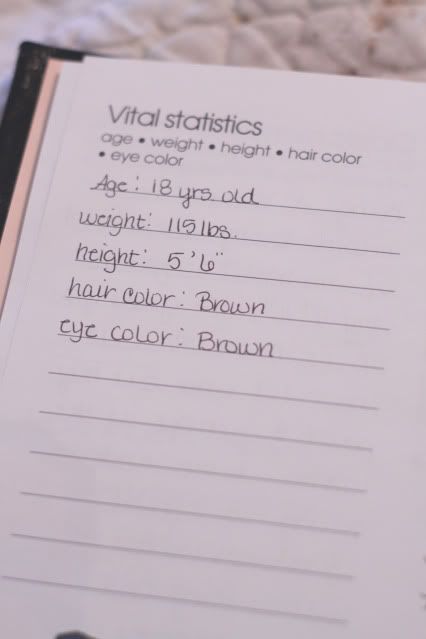 Vital statistics
age • weight • height • hair color
• eye color
Age: 18 yrs. old
weight: 115 lbs.
height: 5'6"
hair color: Brown
eye color: Brown